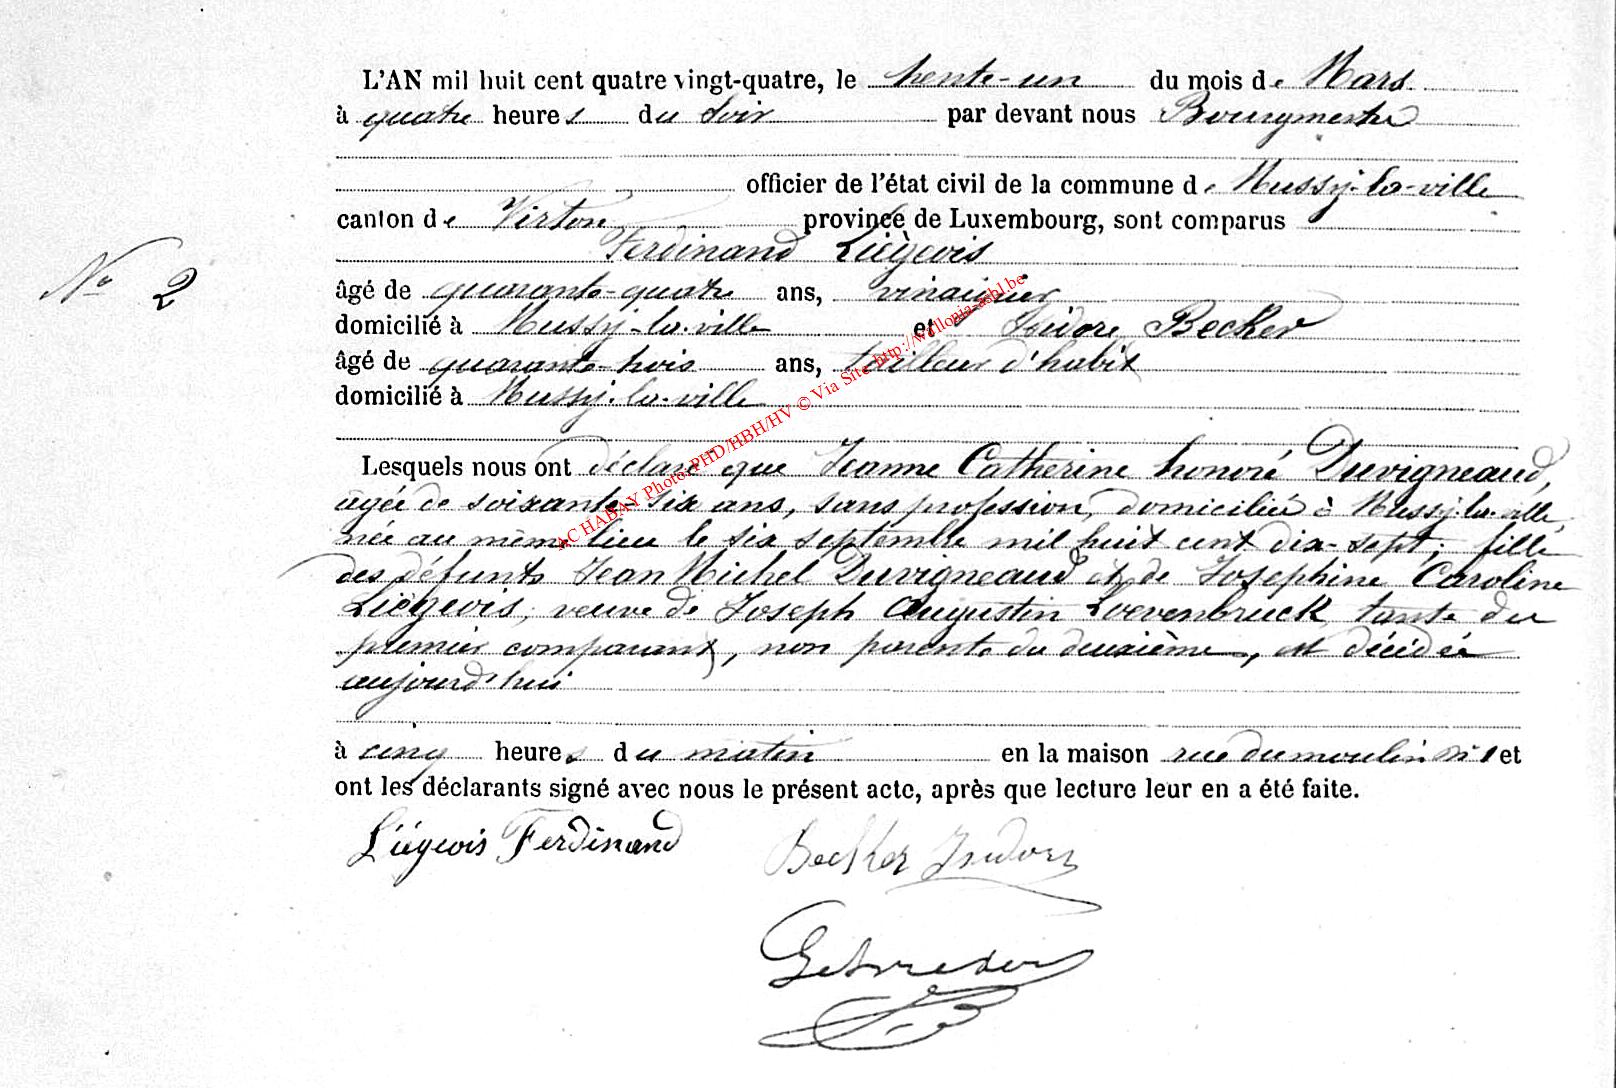 L'AN mil huit cent quatre vingt-quatre, le trente-un du mois de Mars
à quatre heures du Soir par devant nous Bourgmestre
officier de l'état civil de la commune de Mussy-la-ville
canton de Virton province de Luxembourg, sont comparus
Ferdinand Liégeois
N° 2
âgé de quarante-quatre ans, vinaigrier
domicilié à Mussy-la-ville et Isidore Becker
âgé de quarante-trois ans, tailleur d'habit
domicilié à Mussy-la-ville
Lesquels nous ont déclaré que Jeanne Catherine honoré Duvigneaud,
agée de soixante-six ans, sans profession, domiciliée à Mussy-la-ville,
née au même lieu le six septembre mil huit cent dix-sept; fille
des défunts Jean Michel Duvigneaud et de Josephine Caroline
Liégeois, veuve de Joseph Augustin Loevenbruck, tante du
premier comparant, non parente du deuxième, est décédée
aujourd'hui
à cinq heures du matin en la maison rue du moulin N° 1 et
ont les déclarants signé avec nous le présent acte, après que lecture leur en a été faite.
Liégeois Ferdinand Becker Isidore
AC HABAY Photo PHD/HBH/HV © Via Site http://wallonia-asbl.be